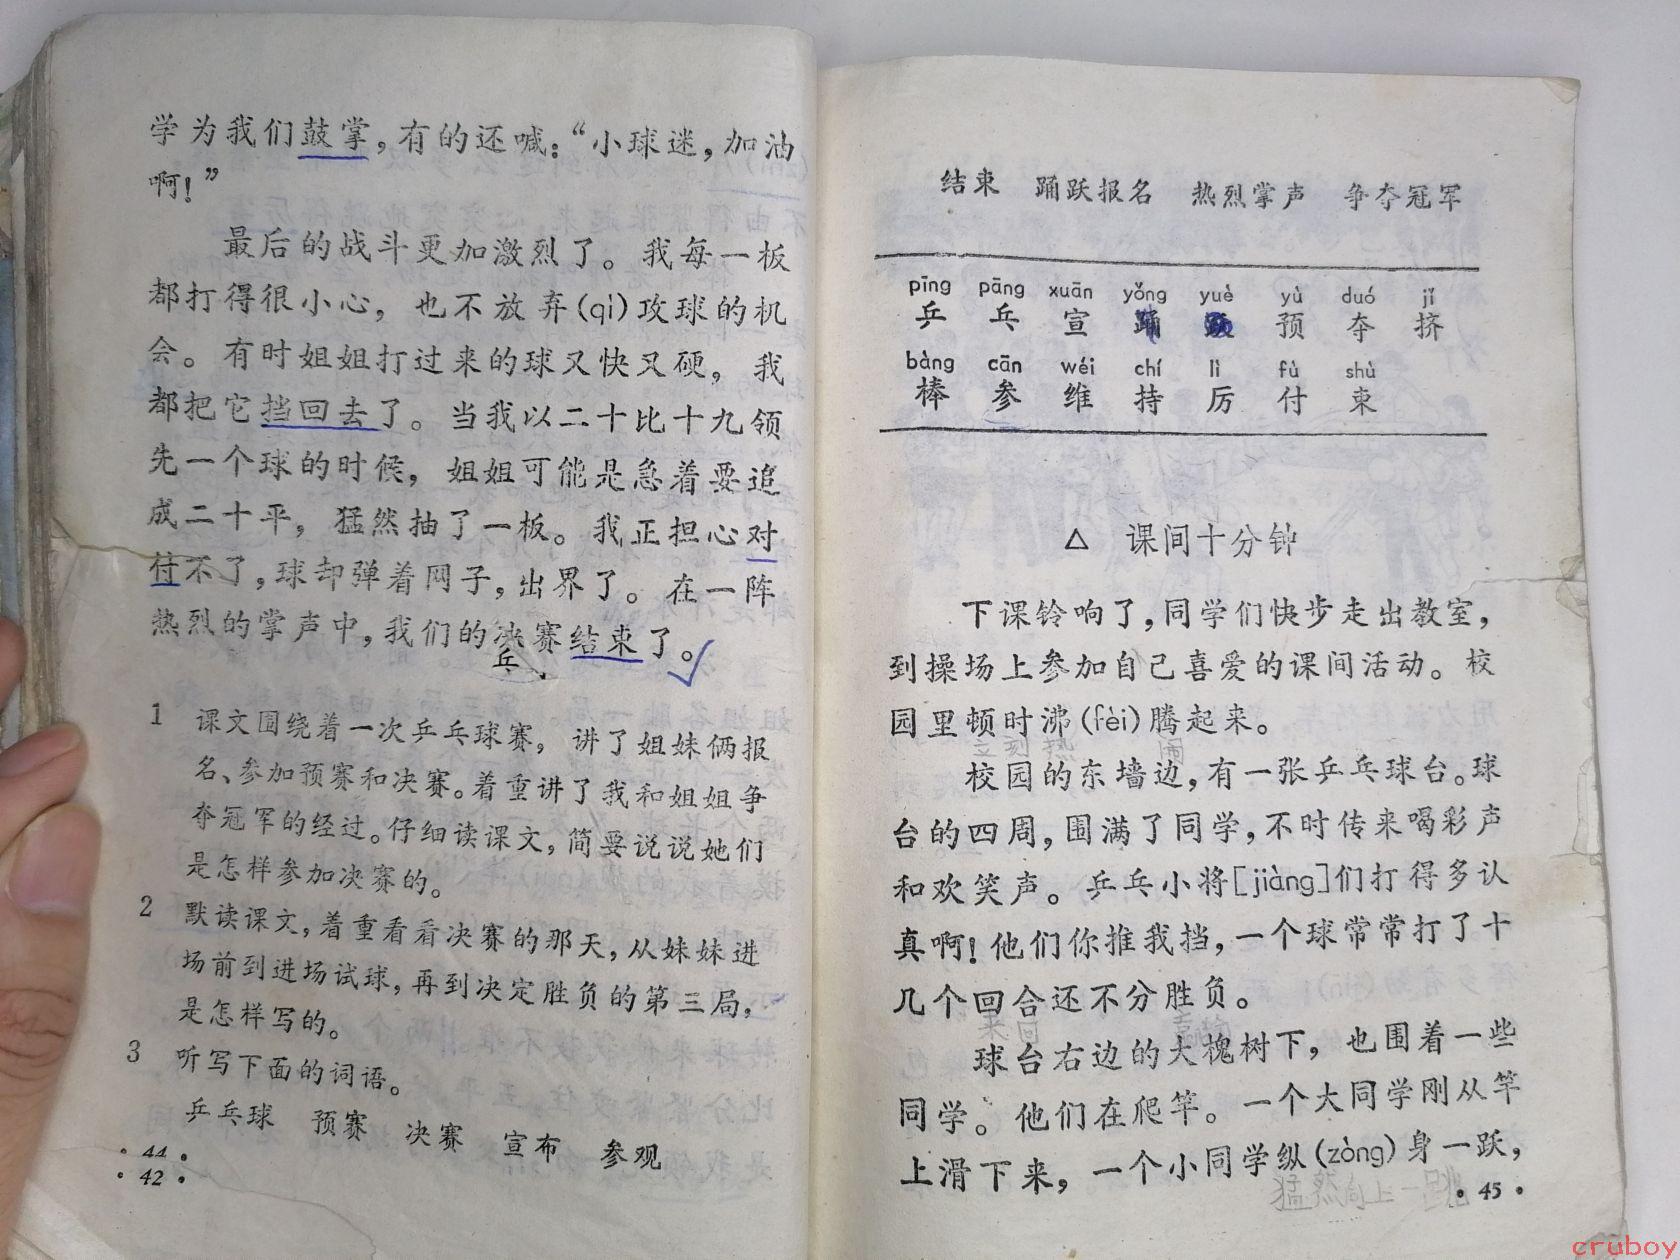 学为我们鼓掌，有的还喊：“小球迷，加油
啊！”
最后的战斗更加激烈了。我每一板
都打得很小心，也不放弃(qì)攻球的机
会。有时姐姐打过来的球又快又硬，我
都把它挡回去了。当我以二十比十九领
先一个球的时候，姐姐可能是急着要追
成二十平，猛然抽了一板。我正担心对
付不了，球却弹着网子，出界了。在一阵
热烈的掌声中，我们的决赛结束了。
乓
1 课文围绕着一次乒乓球赛，讲了姐妹俩报
名、参加预赛和决赛。着重讲了我和姐姐争
夺冠军的经过。仔细读课文，简要说说她们
是怎样参加决赛的。
2 默读课文，着重看看决赛的那天，从妹妹进
场前到进场试球，再到决定胜负的第三局，
是怎样写的。
3 听写下面的词语。
乒乓球 预赛 决赛 宣布 参观
·44·
·42·
结束 踊跃报名 热烈掌声 争夺冠军
pīng pāng xuān yǒng yuè yù duó jǐ
乒 乓 宣 踊 跃 预 夺 挤
bàng cān wéi chí lì fù shù
棒 参 维 持 厉 付 束
△ 课间十分钟
下课铃响了，同学们快步走出教室，
到操场上参加自己喜爱的课间活动。校
园里顿时沸(fèi)腾起来。
立刻热闹
校园的东墙边，有一张乒乓球台。球
台的四周，围满了同学，不时传来喝彩声
和欢笑声。乒乓小将[jiàng]们打得多认
真啊！他们你推我挡，一个球常常打了十
几个回合还不分胜负。
来回
球台右边的大槐树下，也围着一些
同学。他们在爬竿。一个大同学刚从竿
上滑下来，一个小同学纵(zòng)身一跃，
猛然向上一跳
·45·
cruboy